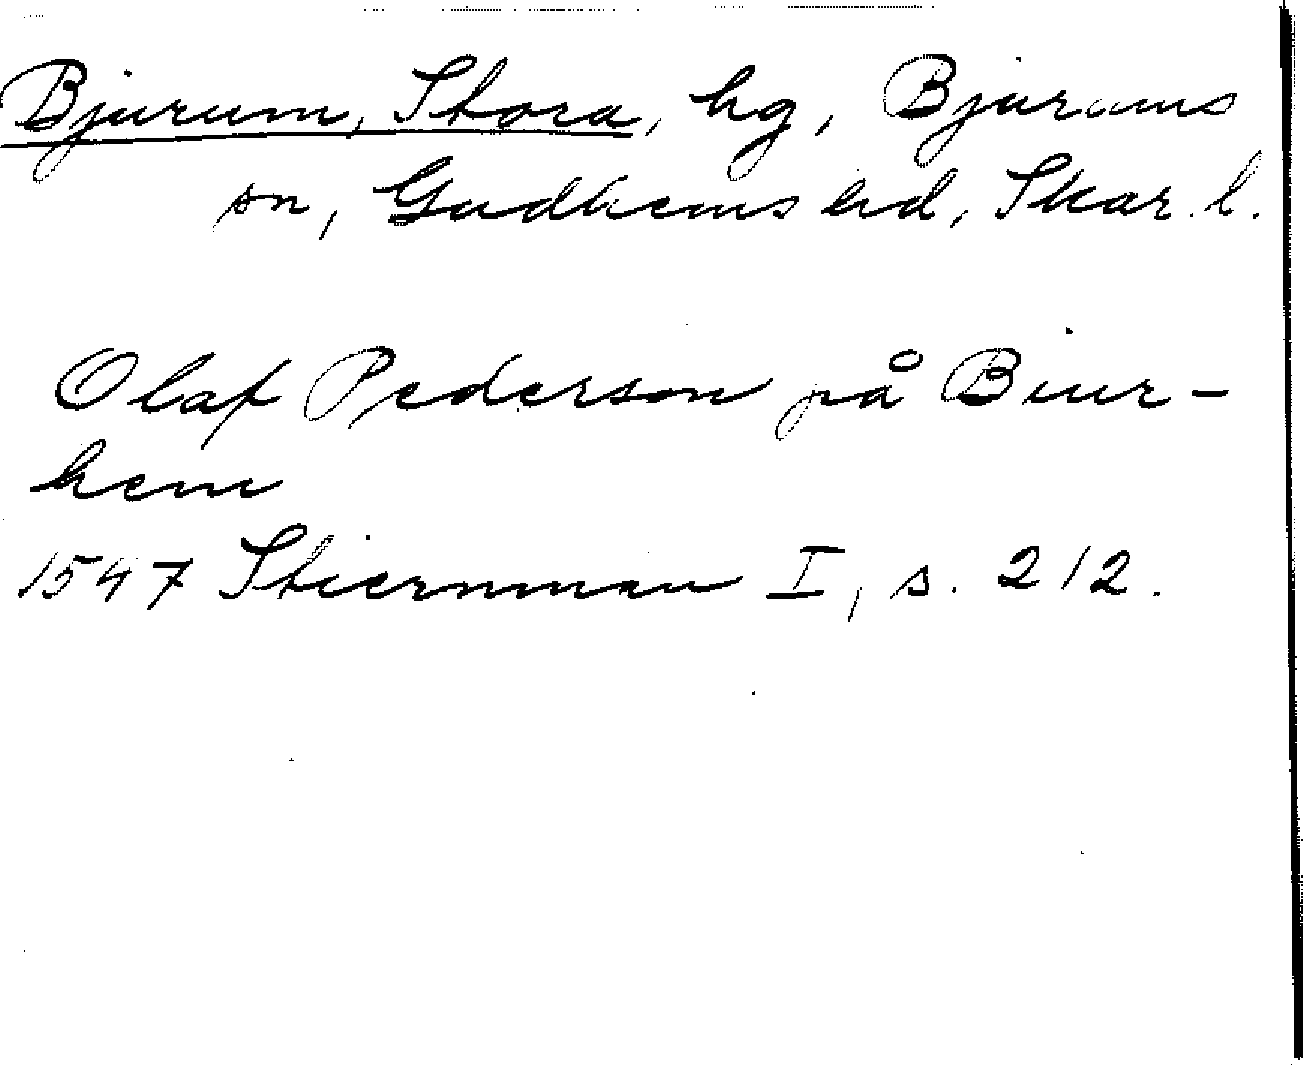 Bjurum, Stora, hg, Bjurums
sn, Gudhems hd, Skar. l.
Olaf Pederson på Biur-
hem
1547 Stiernman I, s. 212.